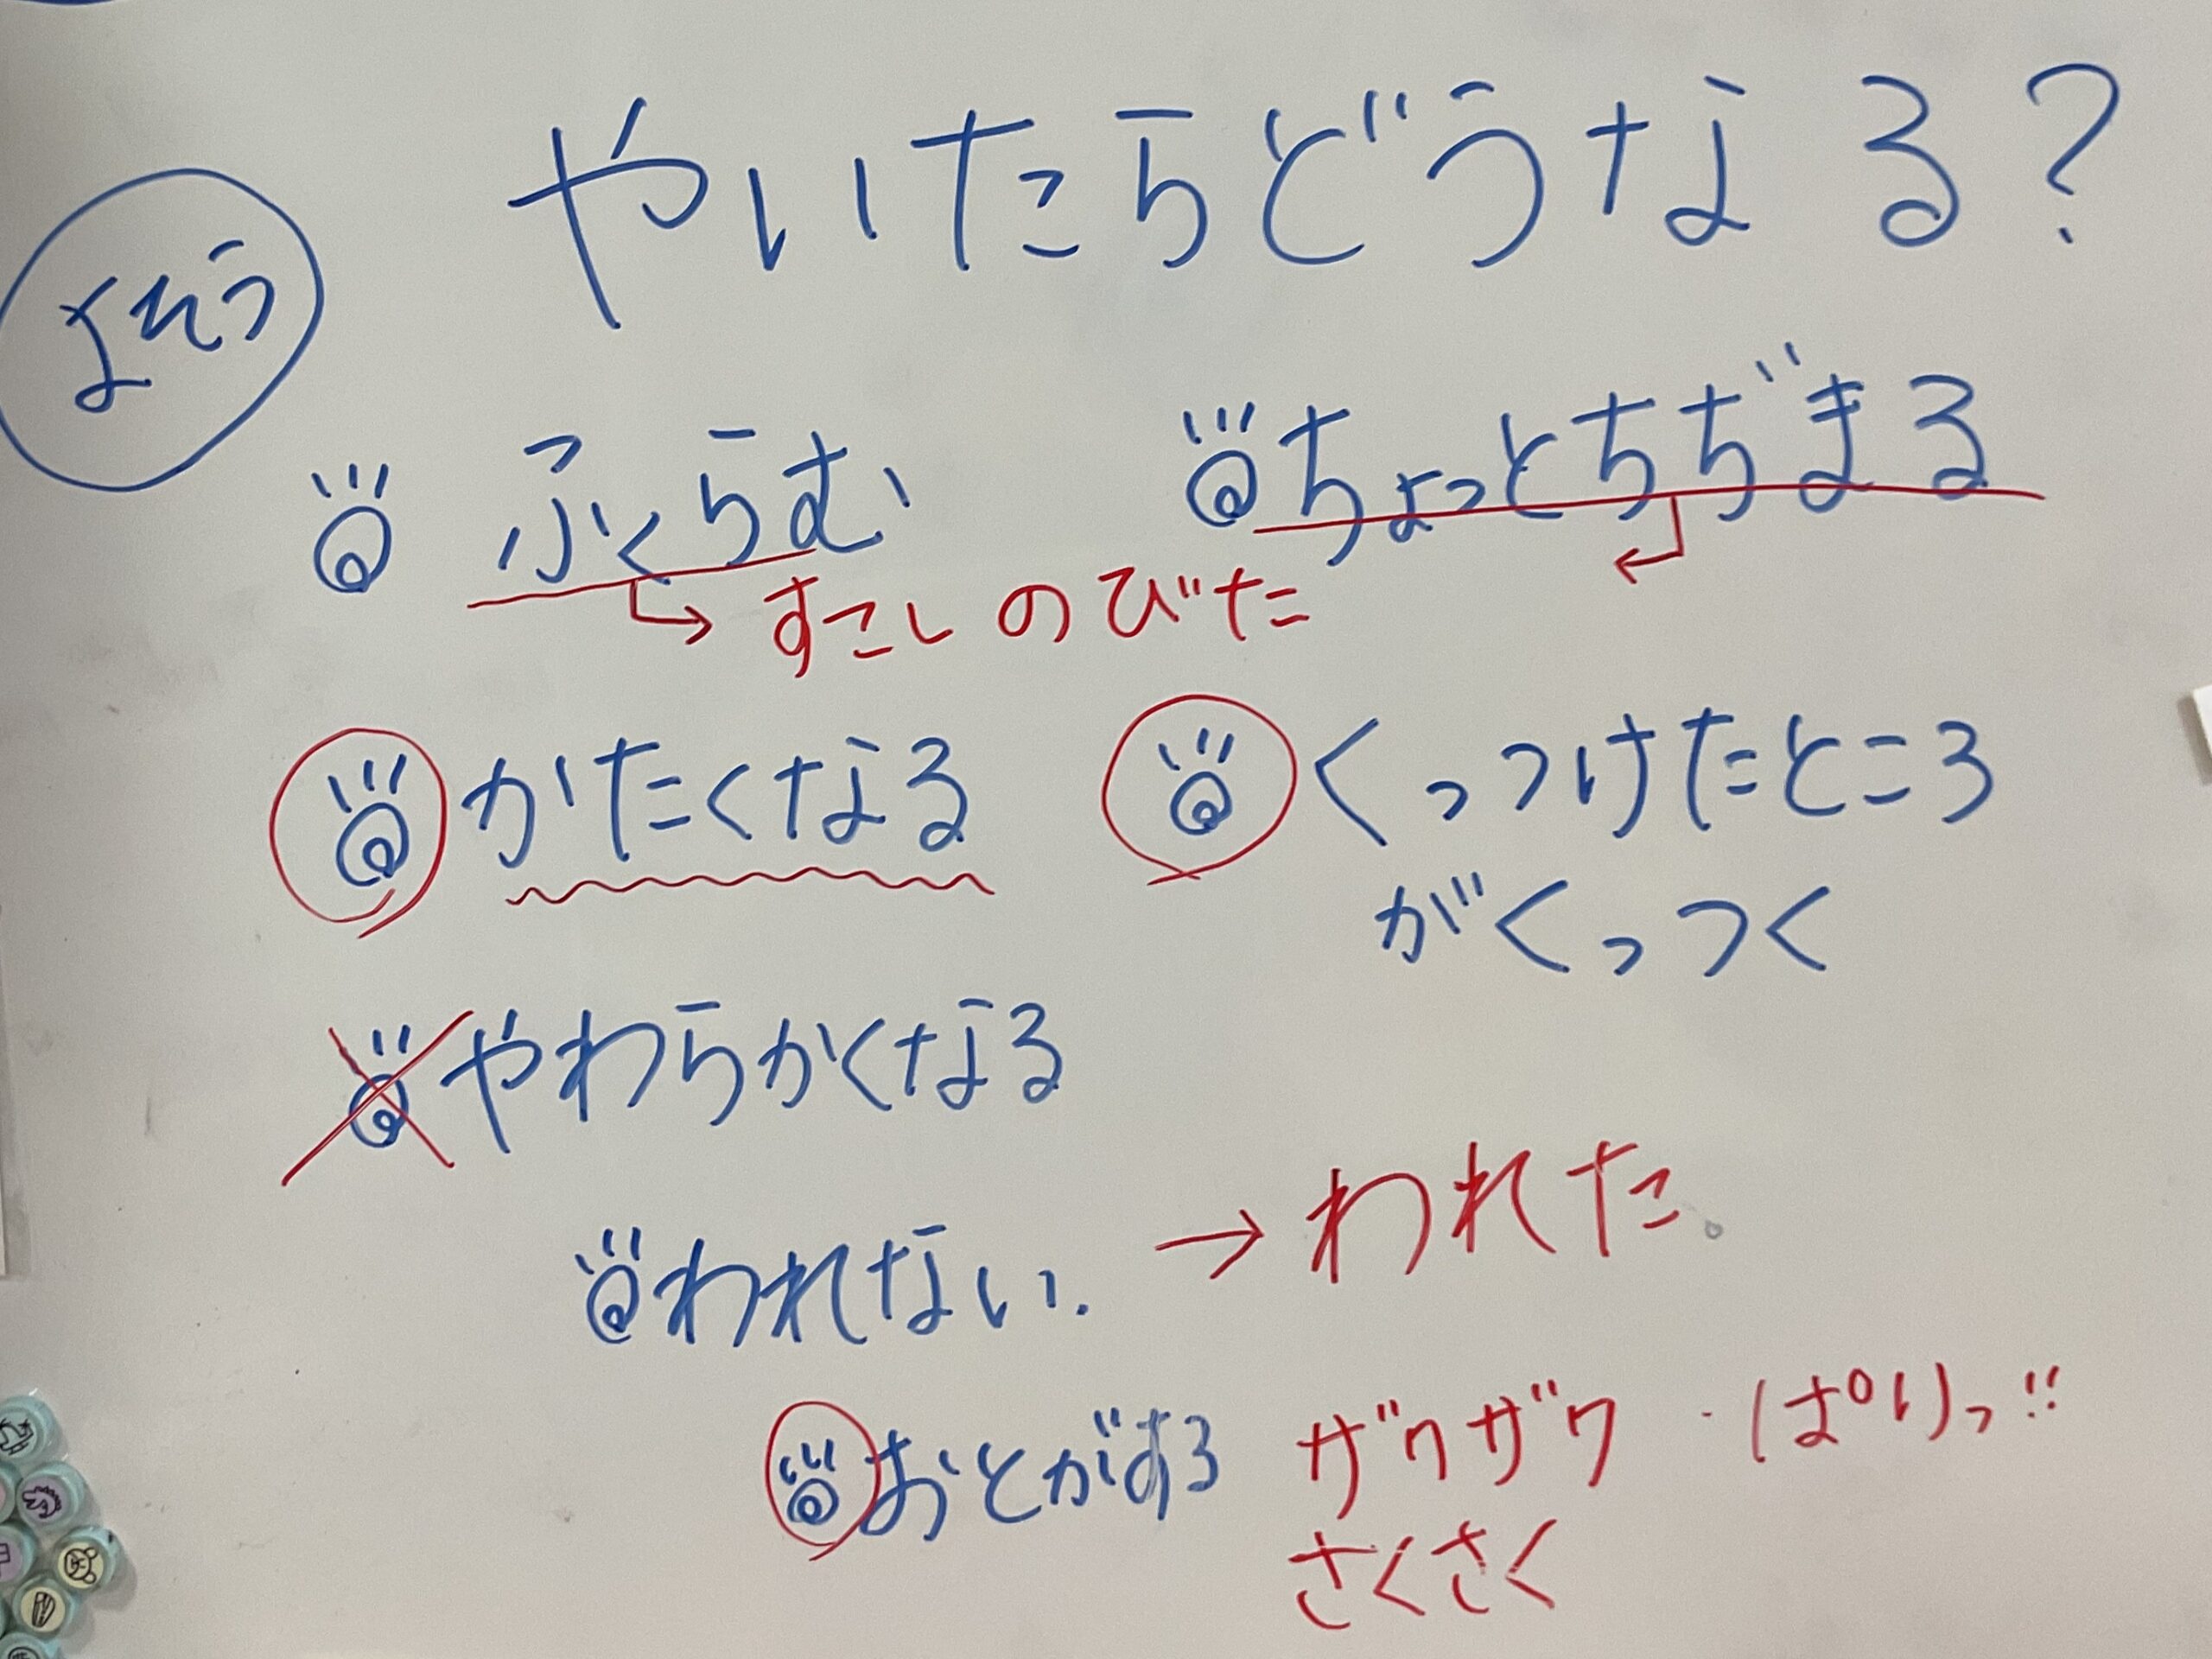 やいたらどうなる?
よそう
ふくらむ
ちょっとちぢまる
すこしのびた
かたくなる
くっつけたところ
がくっつく
やわらかくなる
われない.
→われた。
おとがする
ザクザク・ぱりっ!!
さくさく